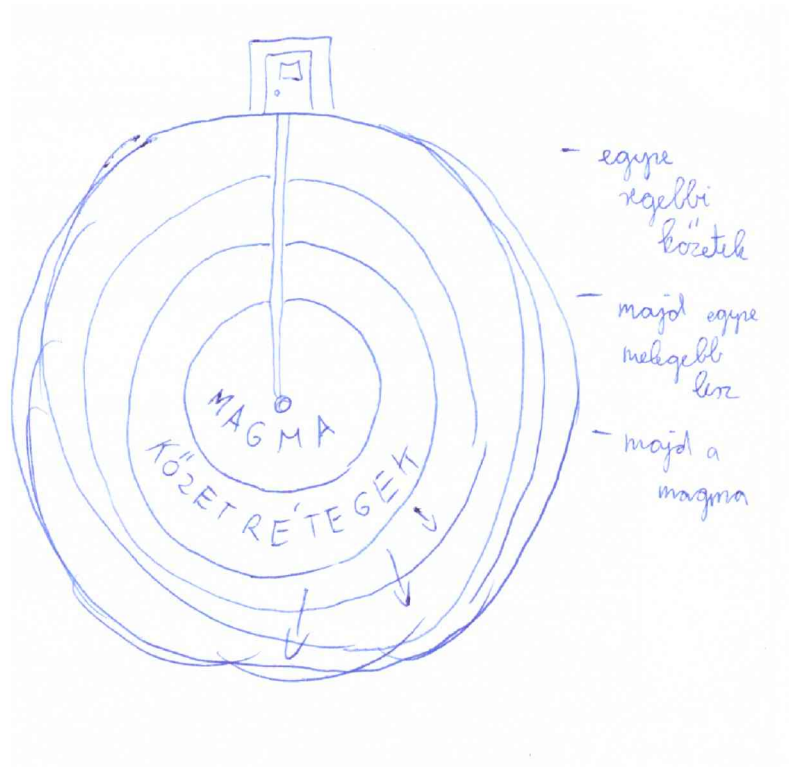 MAGMA
KŐZETRÉTEGEK
- egyre
régebbi
kőzetek
- majd egyre
melegebb
lesz
- majd a
magma